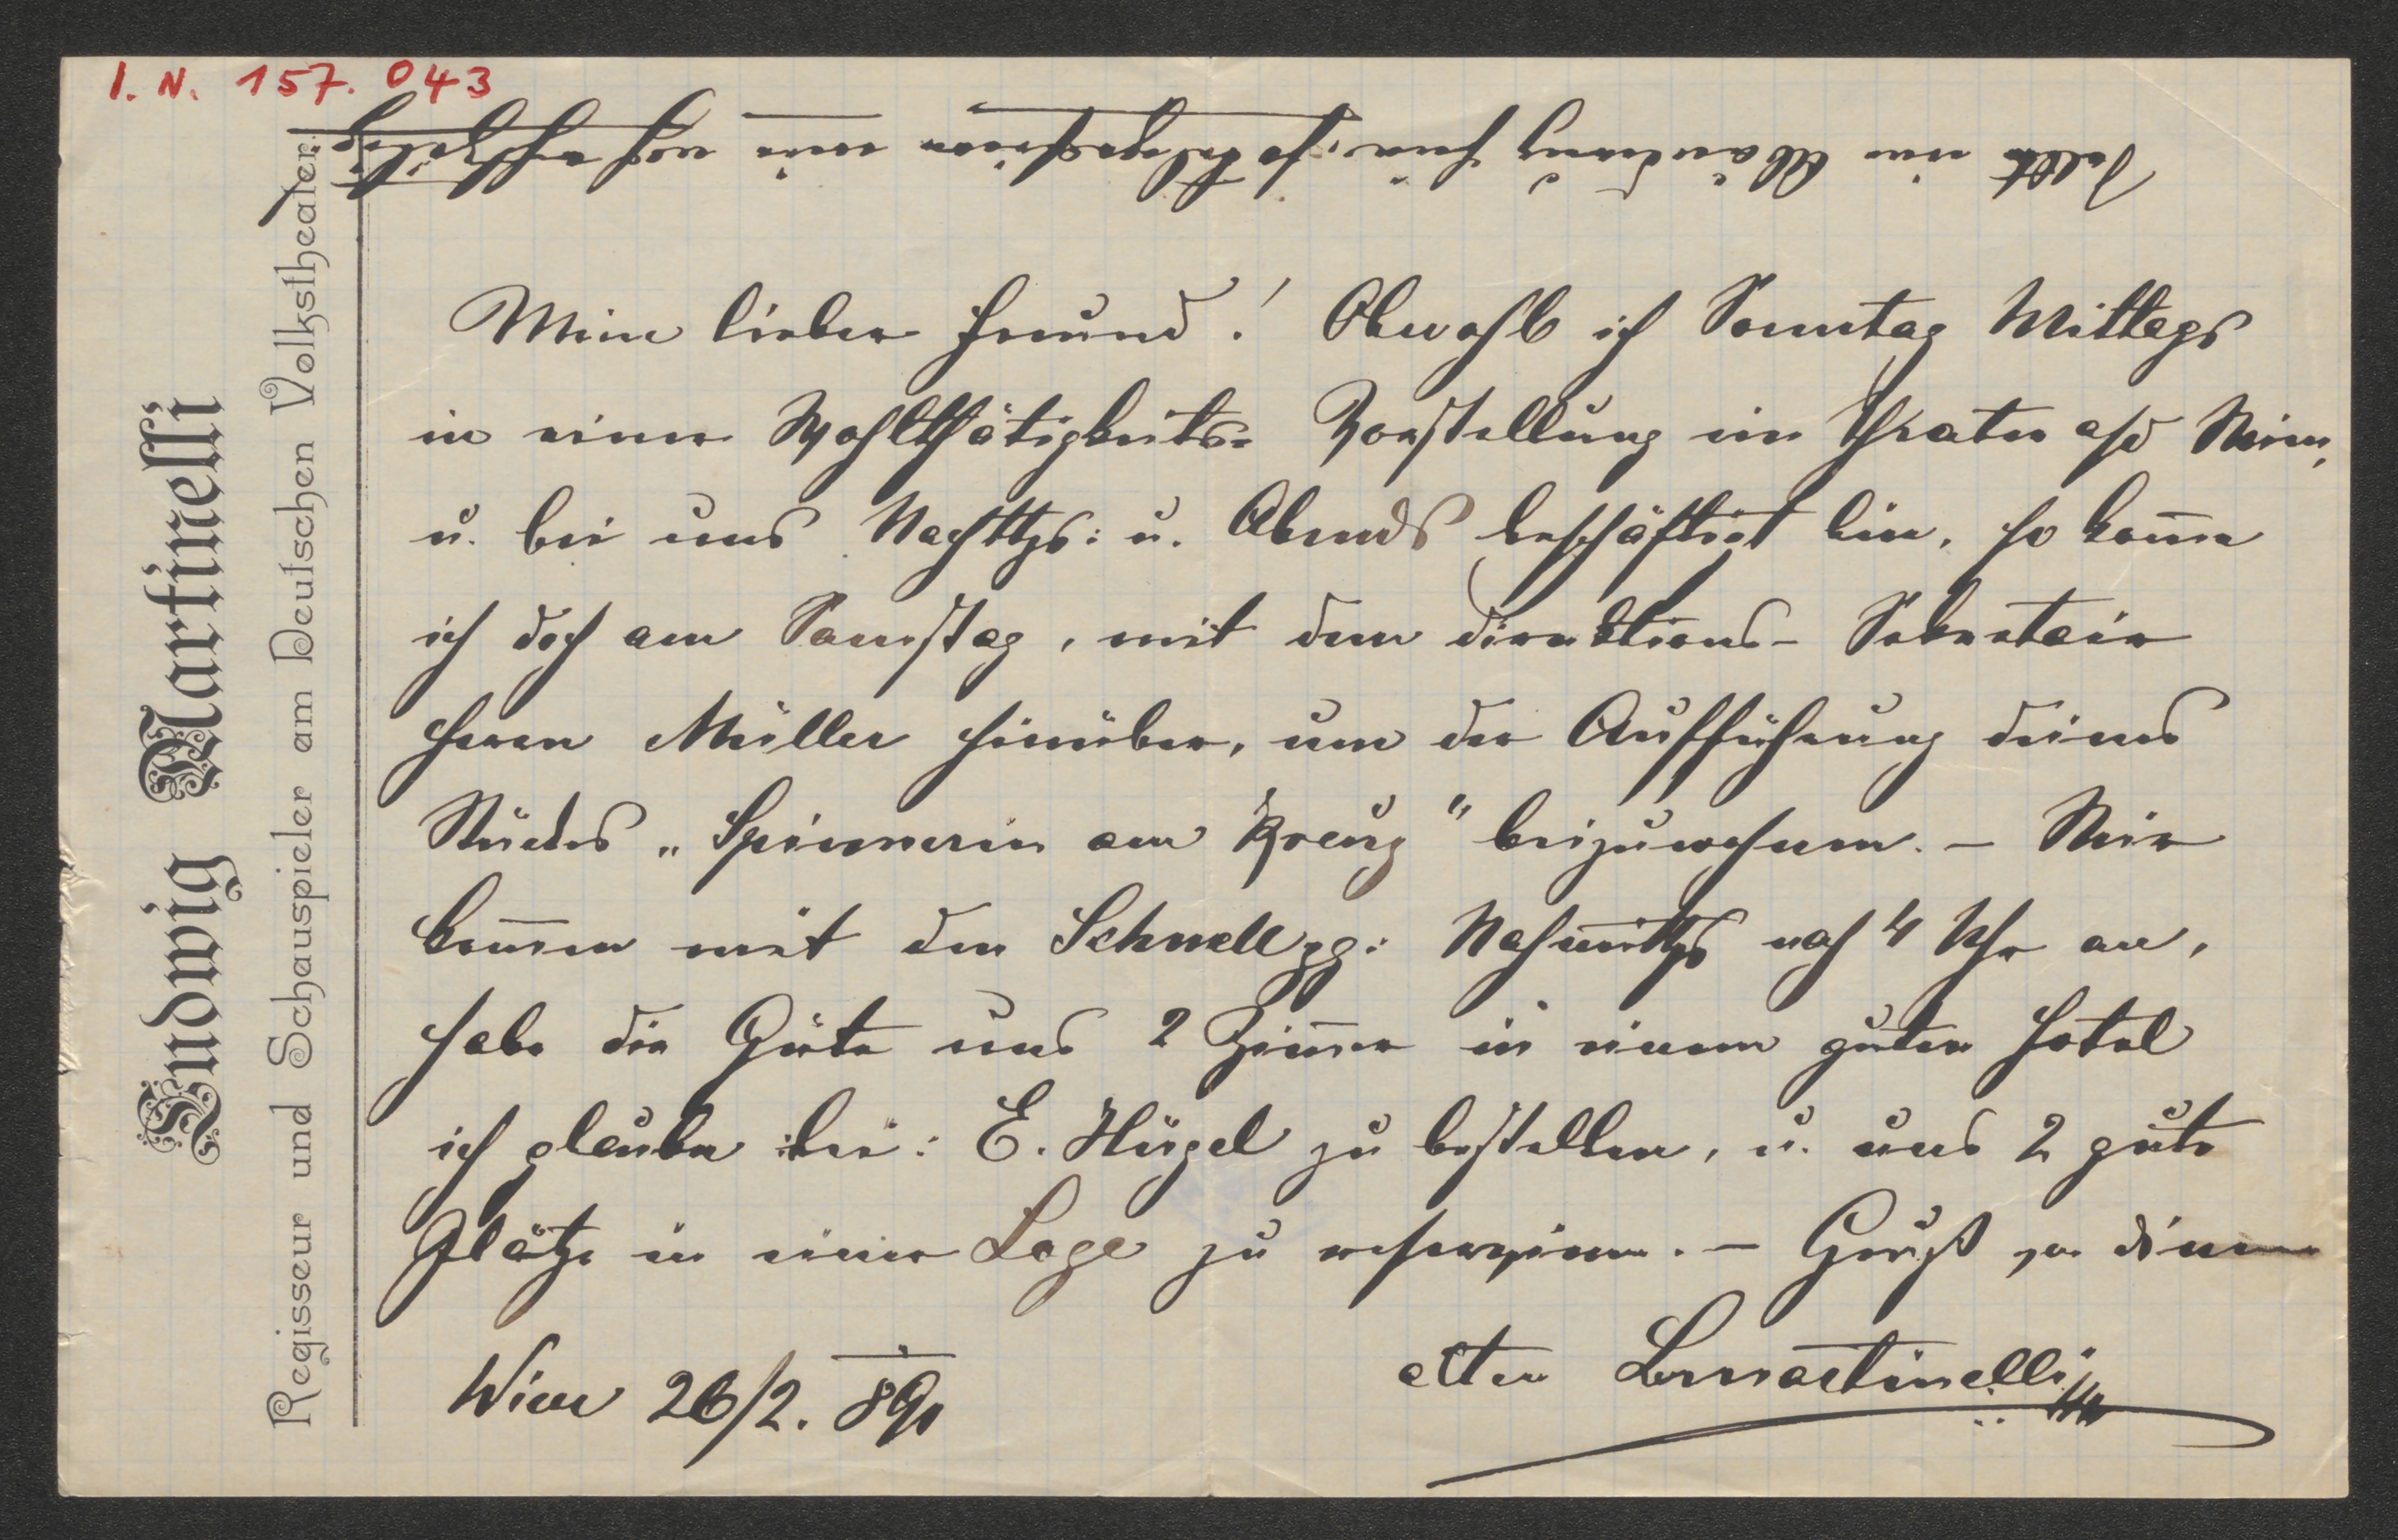 I. N. 157. 043
Ludwig Martinelli
Regisseur und Schauspieler am Deutschen Volkstheater.
Mein lieber Freund! Obwohl ich Sonntag Mittags
in einer Wohlthätigkeits- Vorstellung im Theater a/d Wien,
u. bei uns Nachttgs: u. Abends beschäftigt bin, so kom̅e
ich doch am Samstag, mit dem Direktions- Sekretair
Herrn Müller hinüber, um der Aufführung deines
Stückes „Spinnerin am Kreuz" beizuwohnen. – Wir
kom̅en mit dem Schnellzg: Nachmittgs nach 4 Uhr an,
habe die Güte uns 2 Zim̅er in einem guten Hotel
ich glaube bei: E. Hügel zu bestellen, u. uns 2 gute
Plätze in einer Loge zu reserviren. – Gruß von deinem
alten LMartinelli
Wien 26/2. 890
Sollte eine Abänderung sein, so telegrafiere mir noch rechtzeitig